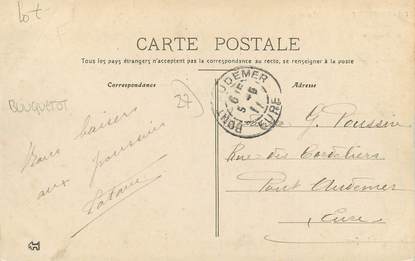 Lot
CARTE POSTALE
Tous les pays étrangers n'acceptent pas la correspondance au recto, se renseigner à la poste
Correspondance
Adresse
BOUQUETOT
27
PONT AUDEMER
EURE
Bons baisers
aux poussins
G. Poussin
Rue des Cordeliers
Pont Audemer
Eure